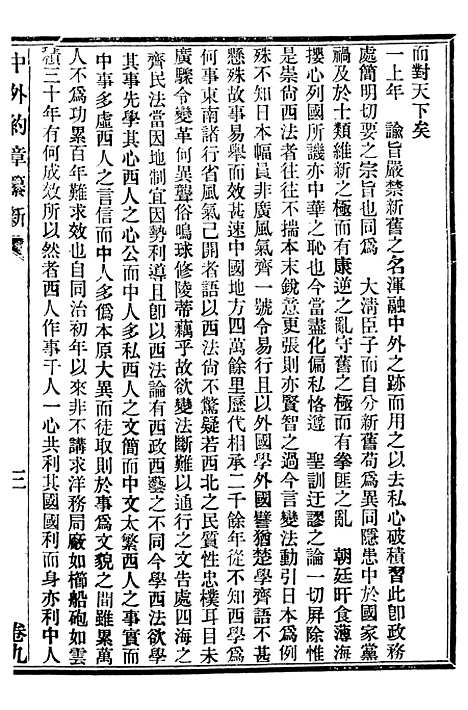 而對天下矣
一上年　諭旨嚴禁新舊之名渾融中外之跡而用之以去私心破積習此卽政務
處簡明切要之宗旨也同爲　大淸臣子而自分新舊苟爲異同隱患中於國家黨
禍及於士類維新之極而有康逆之亂守舊之極而有拳匪之亂　朝廷旰食薄海
攖心列國所譏亦中華之恥也今當盡化偏私恪遵　聖訓迂謬之論一切屛除惟
是崇尚西法不揣本末銳意更張則亦賢智之過今言變法動引日本爲例
殊不知日本幅員非廣風氣齊一號令易行且以外國學外國譬猶楚學齊語不甚
懸殊故事易舉而效甚速中國地方四萬餘里歷代相承二千餘年從不知西學爲
何事東南諸行省風氣已開者語以西法尚不驚疑若西北之民質性忠樸耳目未
廣驟令變革何異聾俗鳴球修陵蒂藕乎故欲變法斷難以通行之文告處四海之
齊民法當因地制宜因勢利導且卽以西法論有西政西藝之不同今學西法欲學
其事先學其心西人之心公而中人多私西人之文簡而中文太繁西人之事實而
中事多虛西人之言信而中人多僞本原大異而徒取則於事爲文貌之間雖累萬
人不爲功累百年難求效也自同治初年以來非不講求洋務局廠如櫛船砲如雲
積三十年有何成效所以然者西人作事千人一心共利其國國利而身亦利中人
中外約章纂新
三
卷九